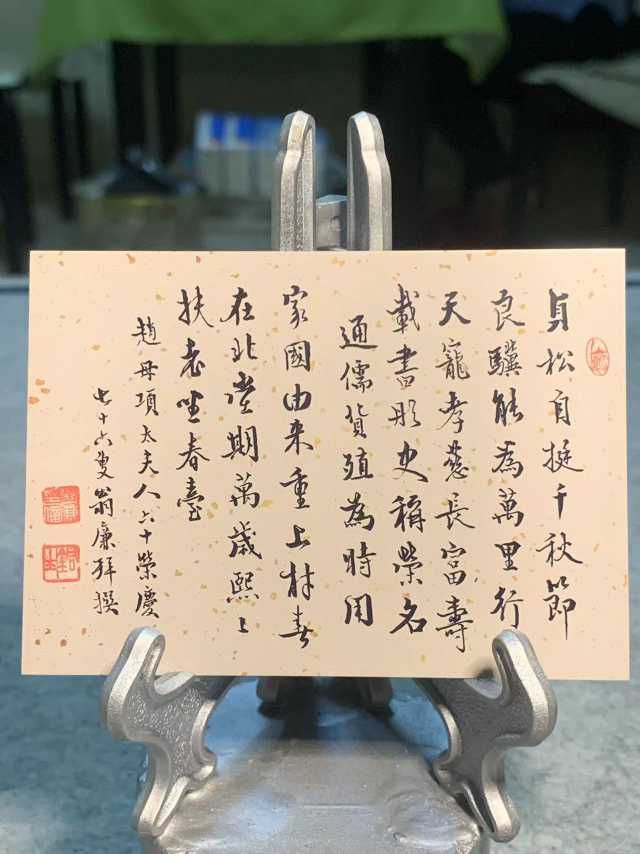 貞松自挺千秋節
良驥能為萬里行
天寵孝慈長富壽
載書彤史稱榮名
通儒貨殖為時用
家國由來重上材春
在北堂期萬歲熙々
扶老坐春臺
趙母項太夫人六十榮慶
七十六叟翁廉拜撰